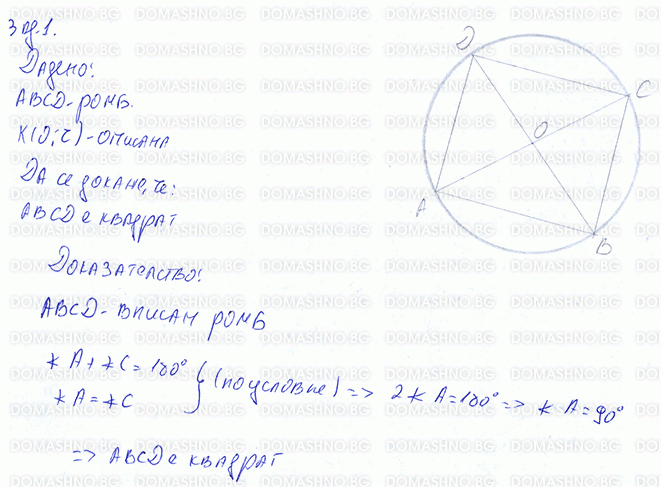 Зад.1.
Дадено:
ABCD - ромб.
K(O; r) - описана
Да се докаже, че:
ABCD е квадрат
Доказателство:
ABCD - вписан ромб
∢A + ∢C = 180°
∢A = ∢C
} (по условие) => 2∢A = 180° => ∢A = 90°
=> ABCD е квадрат
D
C
O
A
B
DOMASHNO.BG